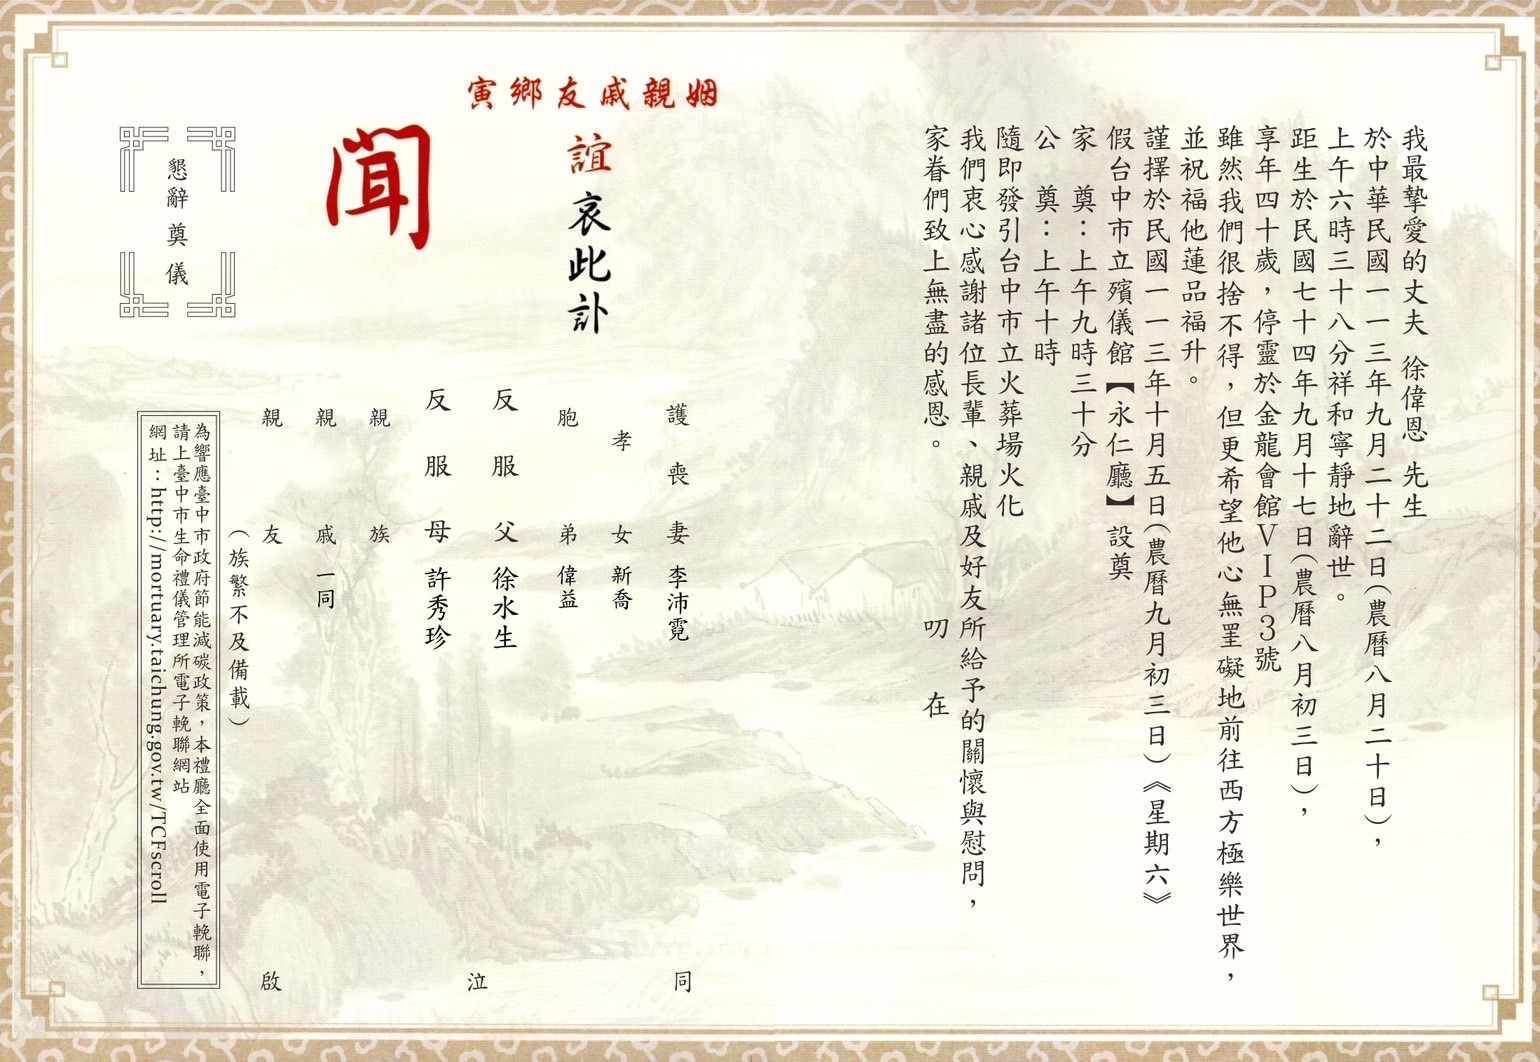 我最摯愛的丈夫 徐偉恩 先生
於中華民國一一三年九月二十二日(農曆八月二十日)，
上午六時三十八分祥和寧靜地辭世。
距生於民國七十四年九月十七日(農曆八月初三日)，
享年四十歲，停靈於金龍會館ＶＩＰ３號
雖然我們很捨不得，但更希望他心無罣礙地前往西方極樂世界，
並祝福他蓮品福升。
謹擇於民國一一三年十月五日(農曆九月初三日)《星期六》
假台中市立殯儀館【永仁廳】設奠
家 奠：上午九時三十分
公 奠：上午十時
隨即發引台中市立火葬場火化
我們衷心感謝諸位長輩、親戚及好友所給予的關懷與慰問，
家眷們致上無盡的感恩。 叨 在
姻親戚友鄉寅
誼哀此訃
聞
護喪妻 李沛霓
孝女 新喬
胞弟 偉益
反服父 徐水生
反服母 許秀珍
親族
親戚 一同
親友
同
泣
啟
(族繁不及備載)
懇辭奠儀
為響應臺中市政府節能減碳政策，本禮廳全面使用電子輓聯，
請上臺中市生命禮儀管理所電子輓聯網站
網址：http://mortuary.taichung.gov.tw/TCFscroll